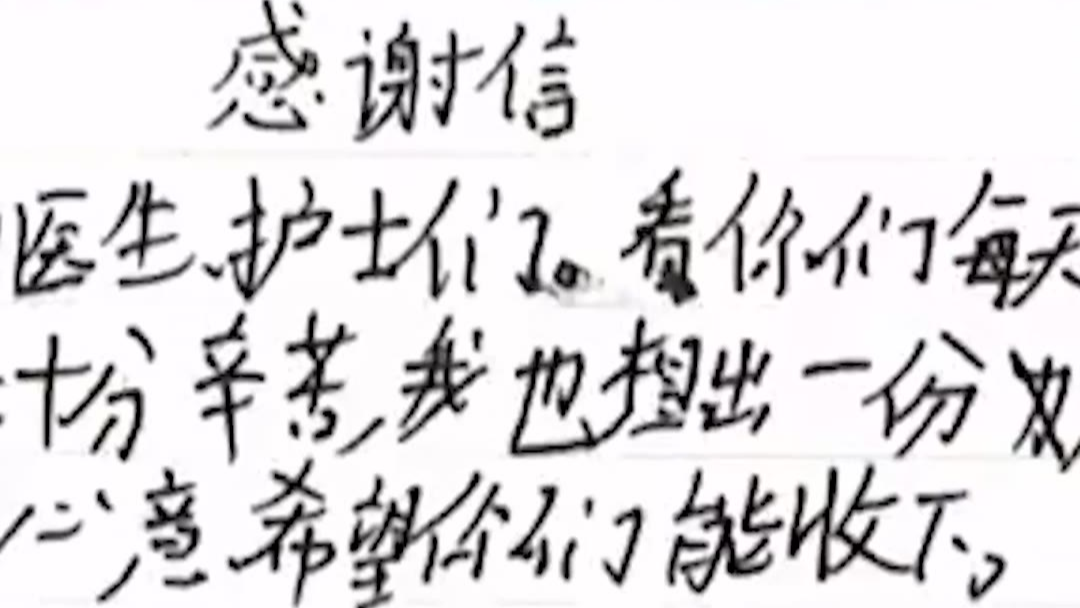 感谢信
医生、护士们。看你们每天
十分辛苦，我也想出一份
心意，希望你们能收下。